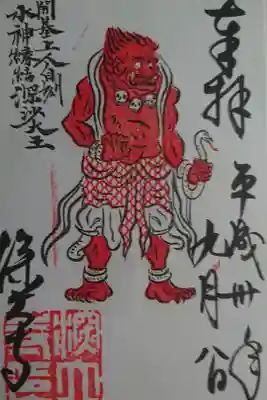 奉拝
平成卅年
九月八日
開基上人自刻
水神深沙大王
深大寺